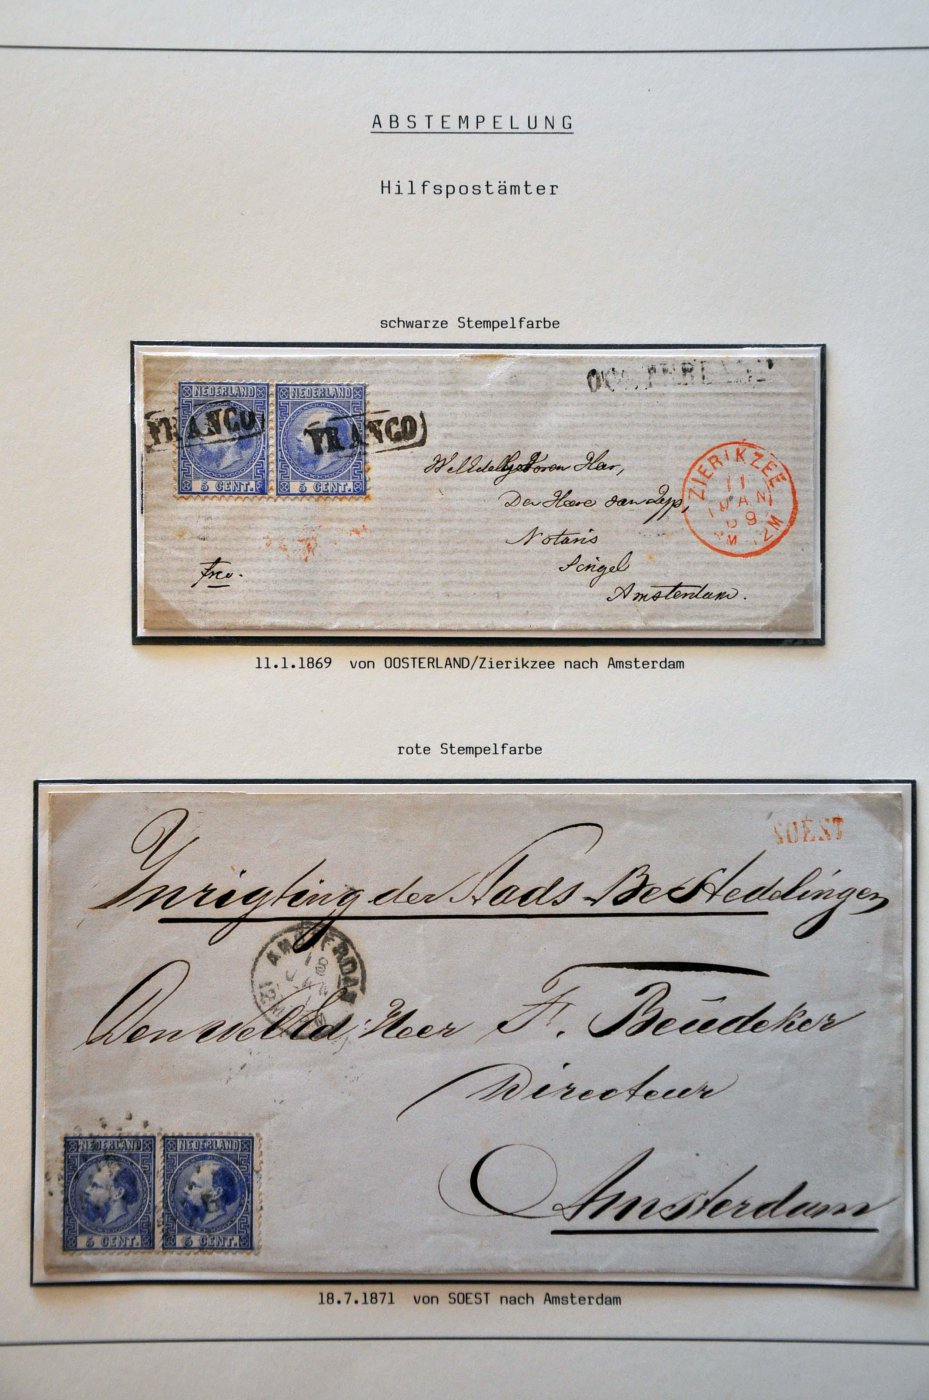 ABSTEMPELUNG
Hilfspostämter
schwarze Stempelfarbe
OOSTERLAND
NEDERLAND NEDERLAND
FRANCO FRANCO
5 CENT. 5 CENT.
ZIERIKZEE
11
JAN
69
Heer,
De Heere van
Notaris
Singel
Amsterdam.
fco.
11.1.1869 von OOSTERLAND/Zierikzee nach Amsterdam
rote Stempelfarbe
SOEST
Inrigting der Stads Bestedelingen
AMSTERDAM
Den weled. Heer F. Beúdeker
Directeur
Amsterdam
NEDERLAND NEDERLAND
5 CENT. 5 CENT.
18.7.1871 von SOEST nach Amsterdam